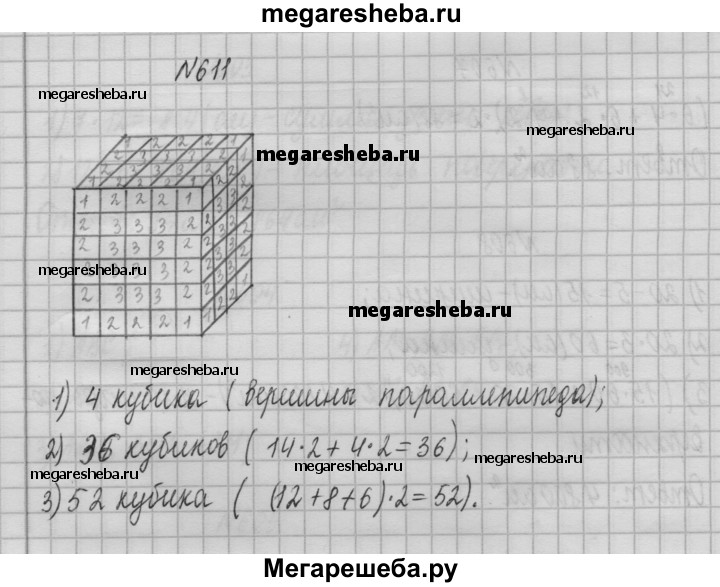 megaresheba.ru
№611
megaresheba.ru
megaresheba.ru
megaresheba.ru
1 2 2 2 1
2 3 3 3 2
2 3 3 3 2
megaresheba.ru
2 3 3 3 2
1 2 2 2 1
megaresheba.ru
megaresheba.ru
1) 4 кубика (вершины параллепипеда);
megaresheba.ru
2) 36 кубиков (14·2+4·2=36);
megaresheba.ru
megaresheba.ru
megaresheba.ru
3) 52 кубика ((12+8+6)·2=52).
Мегарешеба.ру